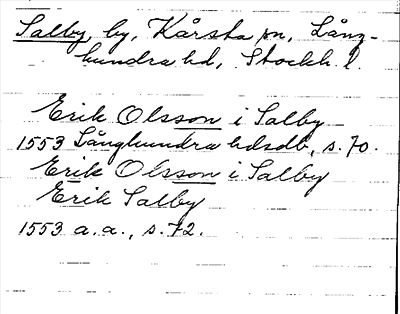 Salby, by, Kårsta sn, Lång-
hundra hd, Stockh. l.
Erik Olsson i Salby
1553 Långhundra hdsdb, s. 70.
Erik Olsson i Salby
Erik Salby
1553 a. a., s. 72.